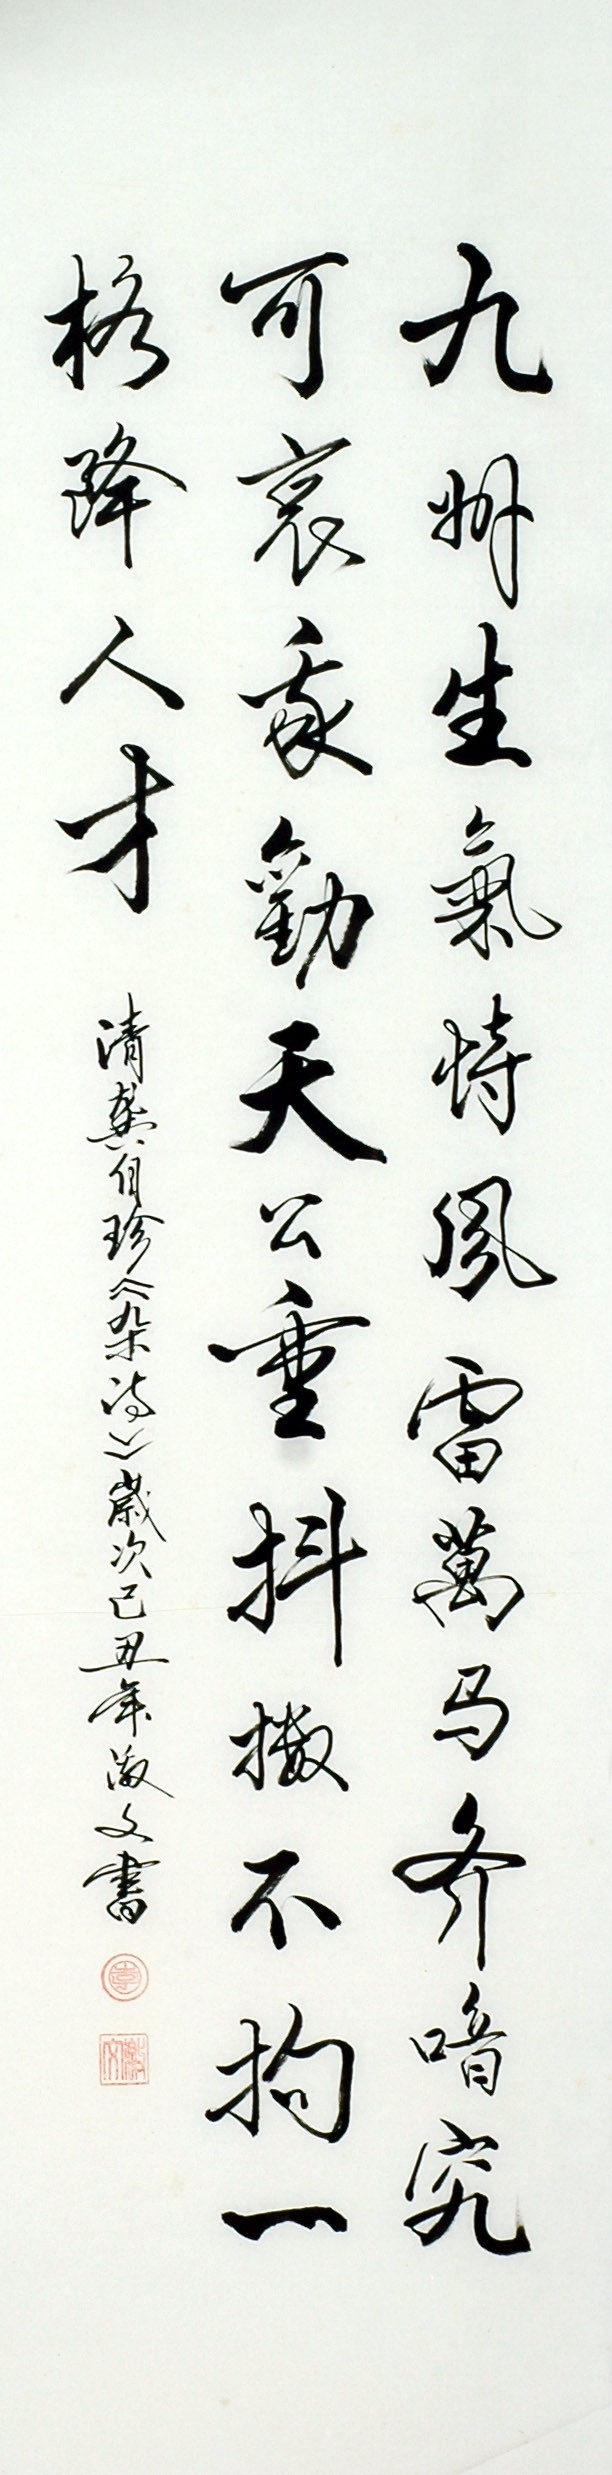 九州生氣恃风雷萬马齐喑究
可哀我勸天公重抖擞不拘一
格降人才
清龔自珍《杂诗》歲次己丑年激文書